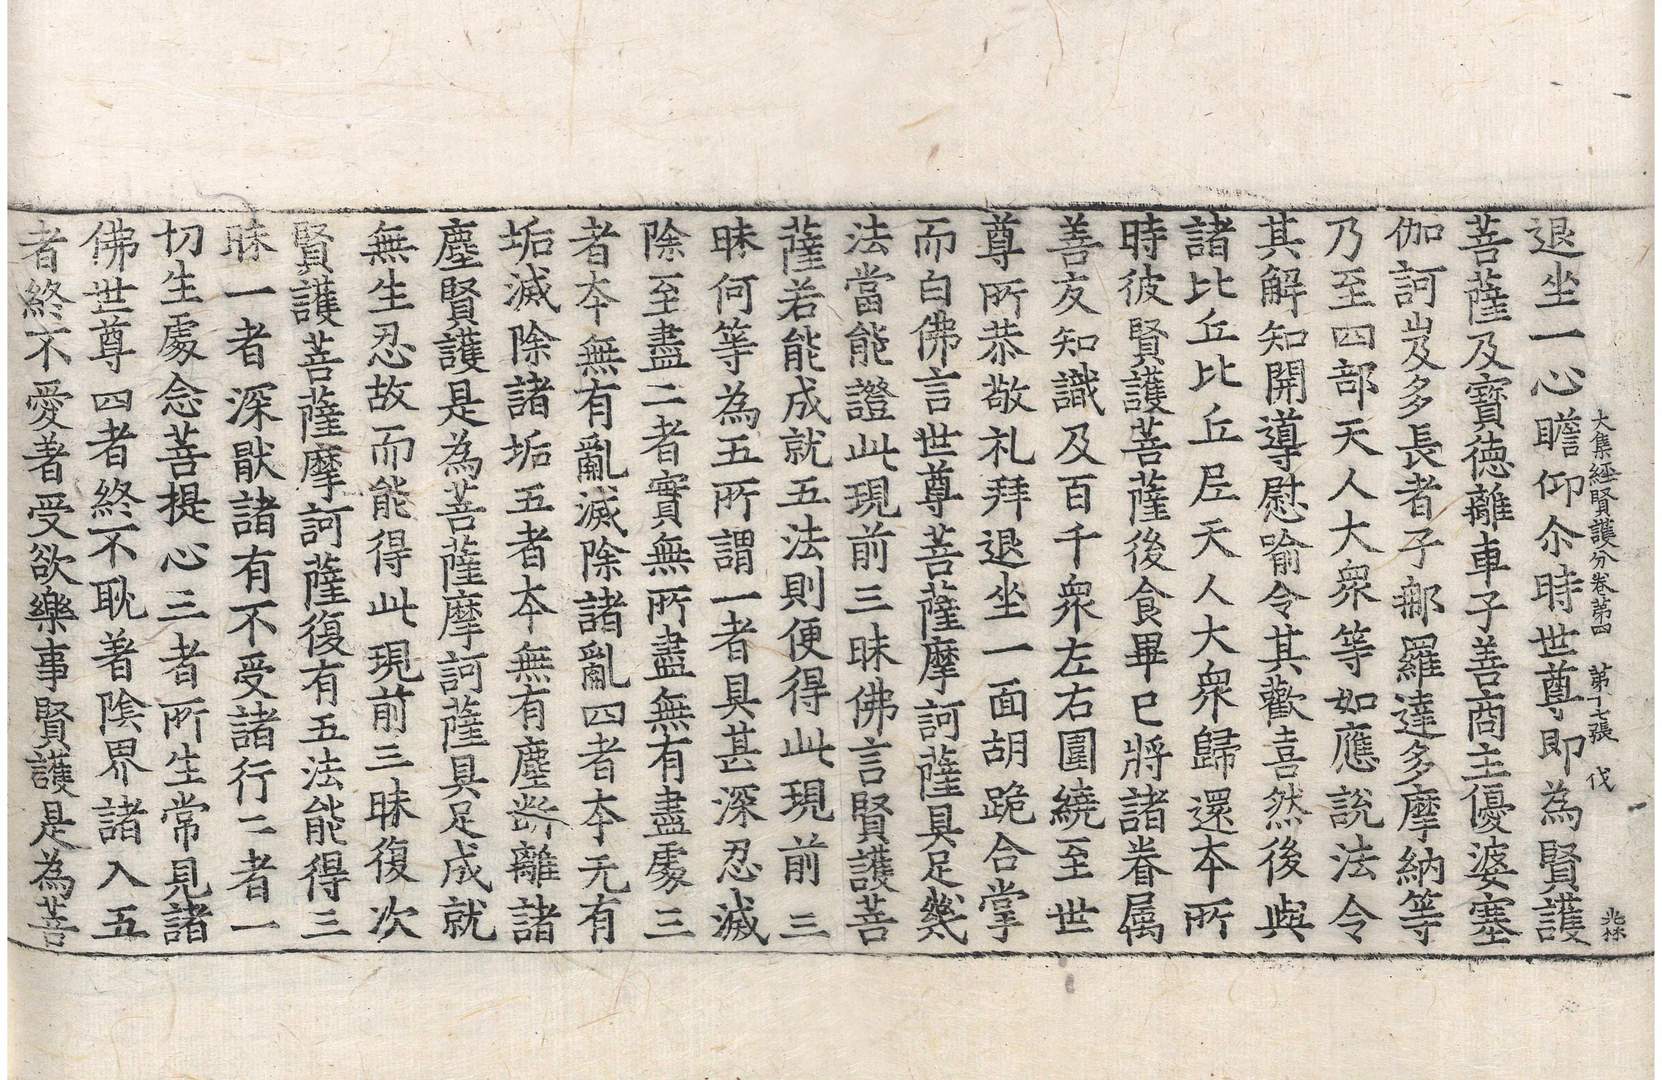 大集經賢護分卷第四　第十七張　伐
退坐一心瞻仰尒時世尊即為賢護
菩薩及寶德離車子善商主優婆塞
伽訶岌多長者子𨚗羅達多摩納等
乃至四部天人大衆等如應說法令
其解知開導慰喻令其歡喜然後與
諸比丘比丘尼天人大衆歸還本所
時彼賢護菩薩後食畢已將諸眷属
善友知識及百千衆左右圍繞至世
尊所恭敬礼拜退坐一面胡跪合掌
而白佛言世尊菩薩摩訶薩具足幾
法當能證此現前三昧佛言賢護菩
薩若能成就五法則便得此現前三
昧何等為五所謂一者具甚深忍滅
除至盡二者實無所盡無有盡處三
者夲無有亂滅除諸亂四者夲无有
垢滅除諸垢五者夲無有塵斷離諸
塵賢護是為菩薩摩訶薩具足成就
無生忍故而能得此現前三昧復次
賢護菩薩摩訶薩復有五法能得三
昧一者深猒諸有不受諸行二者一
切生處念菩提心三者所生常見諸
佛世尊四者終不耽著陰界諸入五
者終不愛著受欲樂事賢護是為菩